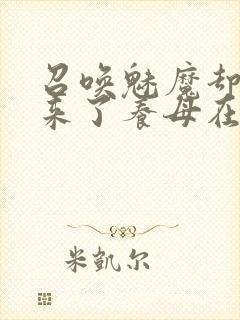 召唤魅魔却
来了养母在
米凯尔